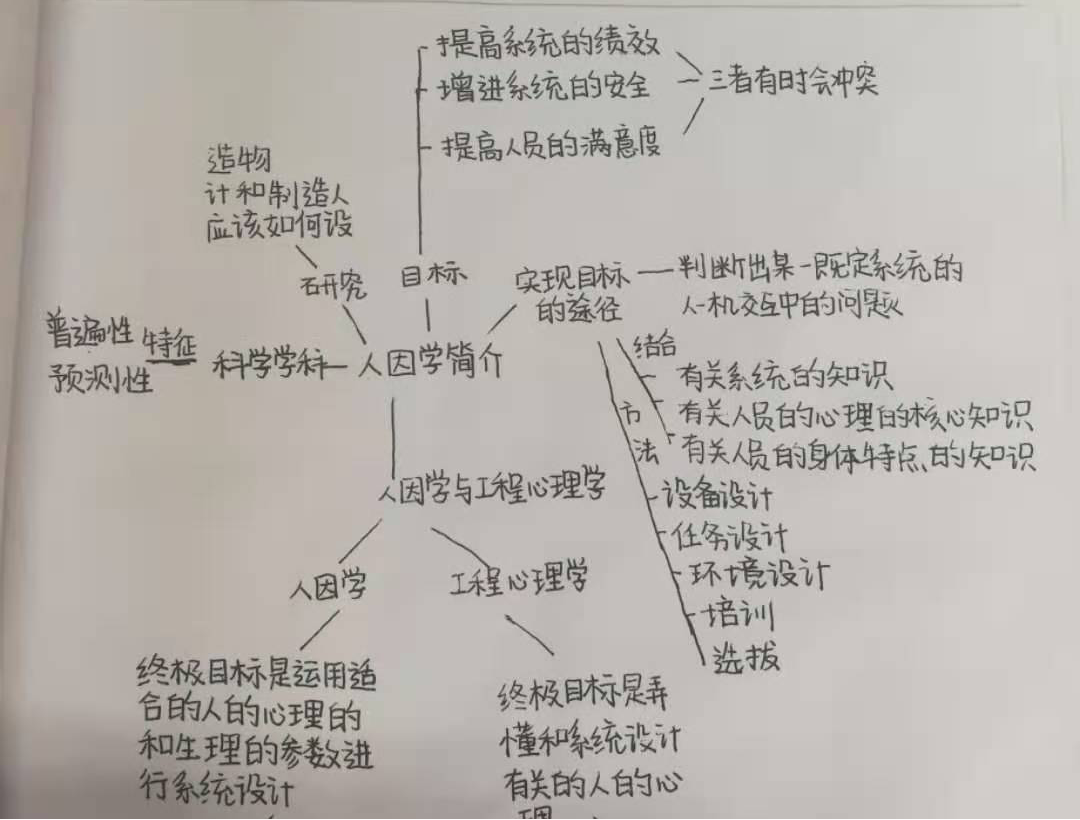 提高系统的绩效
增进系统的安全
提高人员的满意度
三者有时会冲突
造物
计和制造人
应该如何设
研究
目标
实现目标
的途径
判断出某一既定系统的
人-机交互中的问题
普遍性
预测性
特征
科学学科
人因学简介
结合
有关系统的知识
有关人员的心理的核心知识
有关人员的身体特点的知识
方
法
设备设计
任务设计
环境设计
培训
选拔
人因学与工程心理学
人因学
工程心理学
终极目标是运用适
合的人的心理的
和生理的参数进
行系统设计
终极目标是弄
懂和系统设计
有关的人的心
理